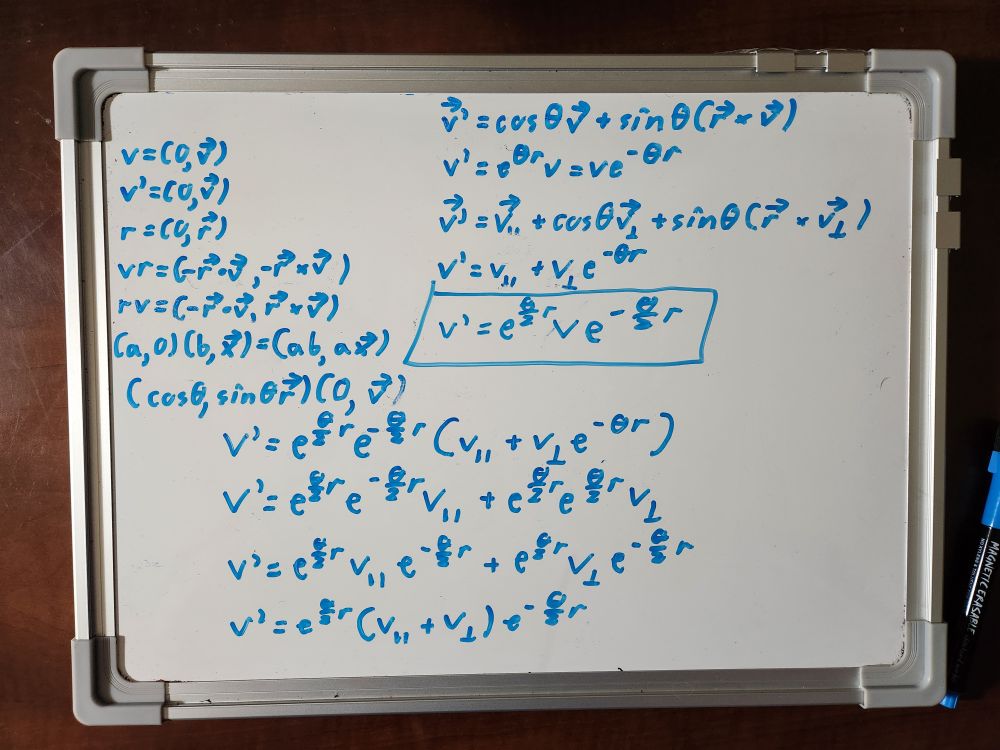 v=(0,v⃗)
v'=(0,v⃗)
r=(0,r⃗)
vr=(-r⃗·v⃗,-r⃗×v⃗)
rv=(-r⃗·v⃗,r⃗×v⃗)
(a,0)(b,x⃗)=(ab,ax⃗)
(cosθ,sinθr⃗)(0,v⃗)
v⃗'=cosθv⃗+sinθ(r⃗×v⃗)
v'=e^{θr}v=ve^{-θr}
v⃗'=v⃗_{||}+cosθv⃗_⊥+sinθ(r⃗×v⃗_⊥)
v'=v_{||}+v_⊥e^{-θr}
v'=e^{θ/2 r}ve^{-θ/2 r}
v'=e^{θ/2 r}e^{-θ/2 r}(v_{||}+v_⊥e^{-θr})
v'=e^{θ/2 r}e^{-θ/2 r}v_{||}+e^{θ/2 r}e^{θ/2 r}v_⊥
v'=e^{θ/2 r}v_{||}e^{-θ/2 r}+e^{θ/2 r}v_⊥e^{-θ/2 r}
v'=e^{θ/2 r}(v_{||}+v_⊥)e^{-θ/2 r}
MAGNETIC ERASABLE